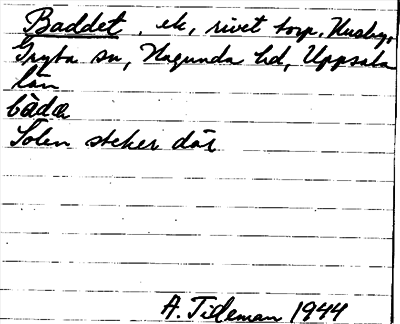 Baddet, ek, rivet torp, Husby,
Gryta sn, Hagunda hd, Uppsala
län
bàdə
Solen steker där
A. Tideman 1944